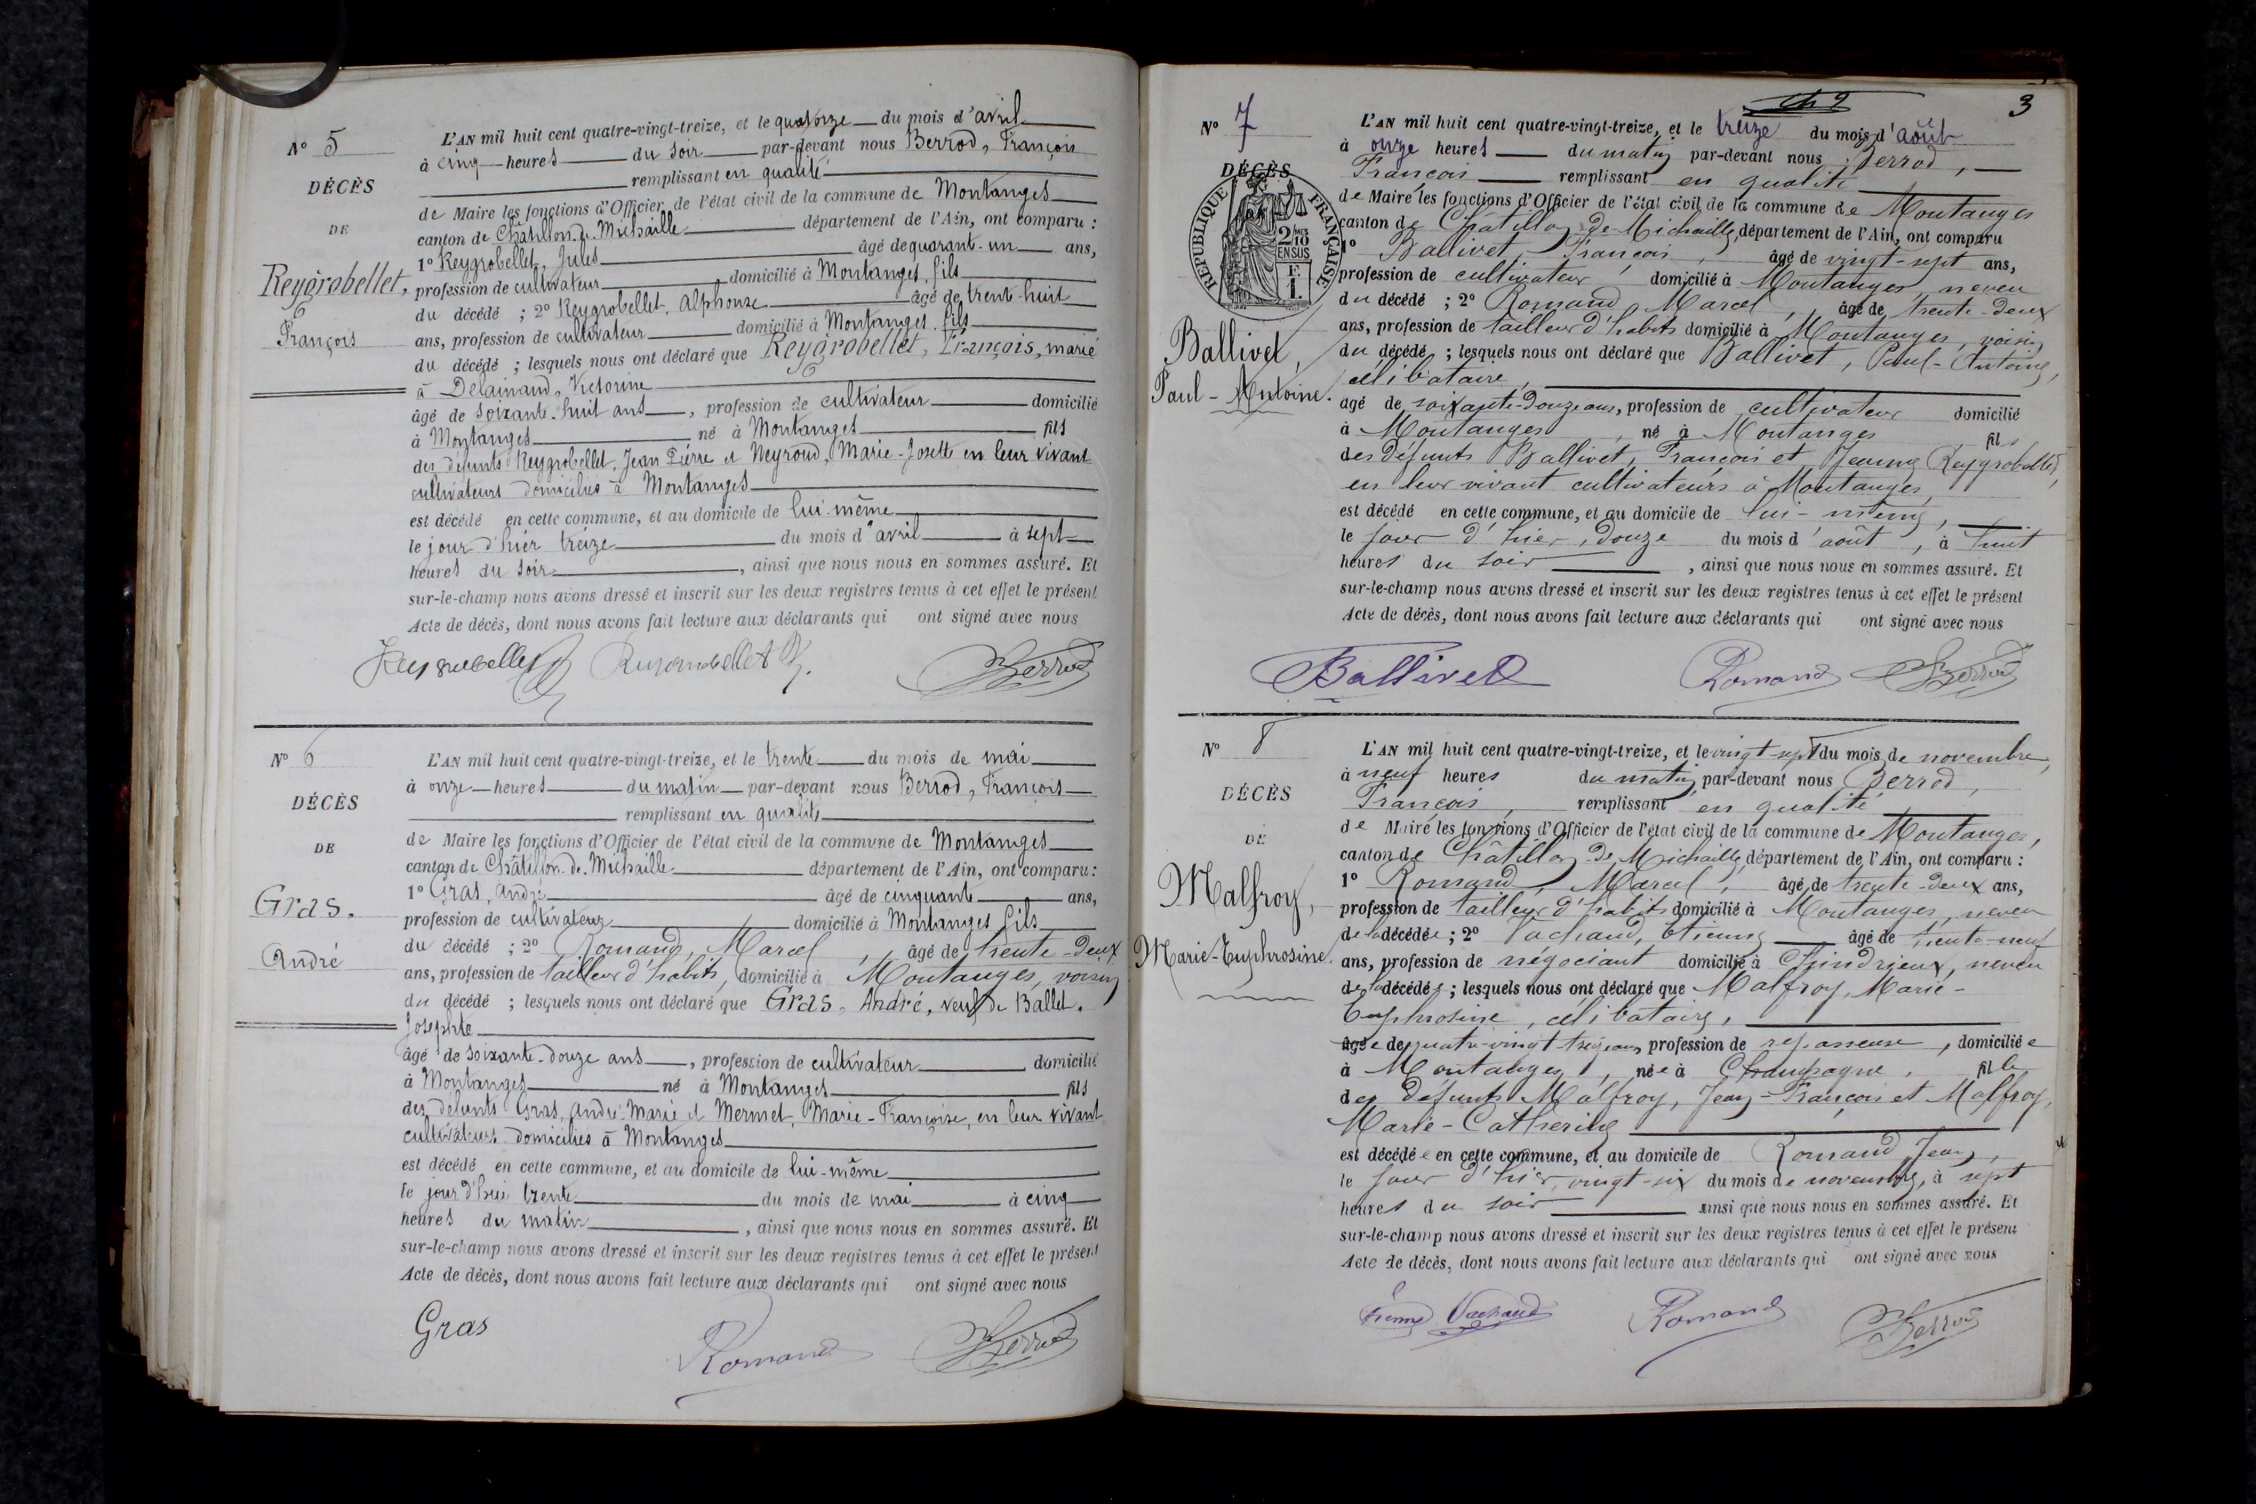 N° 5
DÉCÈS
DE
Reygrobellet,
François
L'AN mil huit cent quatre-vingt-treize, et le quatorze du mois d'avril
à cinq heures du soir par-devant nous Berrod, François
remplissant en qualité
de Maire les fonctions d'Officier de l'état civil de la commune de Montanges
canton de Châtillon-de-Michaille département de l'Ain, ont comparu :
1° Reygrobellet, Jules âgé de quarante-un ans,
profession de cultivateur domicilié à Montanges, fils
du décédé ; 2° Reygrobellet, Alphonse âgé de trente-huit
ans, profession de cultivateur domicilié à Montanges, fils
du décédé ; lesquels nous ont déclaré que Reygrobellet, François, marié
à Delainaud, Victorine
âgé de soixante-huit ans, profession de cultivateur domicilié
à Montanges né à Montanges fils
des défunts Reygrobellet, Jean Pierre et Neyroud, Marie-Josette en leur vivant
cultivateurs domiciliés à Montanges
est décédé en cette commune, et au domicile de lui-même
le jour d'hier treize du mois d'avril à sept
heures du soir, ainsi que nous nous en sommes assuré. Et
sur-le-champ nous avons dressé et inscrit sur les deux registres tenus à cet effet le présent
Acte de décès, dont nous avons fait lecture aux déclarants qui ont signé avec nous
Reygrobellet Reygrobellet Berrod
N° 6
DÉCÈS
DE
Gras.
André
L'AN mil huit cent quatre-vingt-treize, et le trente du mois de mai
à onze heures du matin par-devant nous Berrod, François
remplissant en qualité
de Maire les fonctions d'Officier de l'état civil de la commune de Montanges
canton de Châtillon-de-Michaille département de l'Ain, ont comparu :
1° Gras, André âgé de cinquante ans,
profession de cultivateur domicilié à Montanges fils
du décédé ; 2° Romand, Marcel, âgé de trente-deux
ans, profession de tailleur d'habits, domicilié à Montanges, voisin
du décédé ; lesquels nous ont déclaré que Gras, André, veuf de Ballet,
Josephte
âgé de soixante-douze ans, profession de cultivateur domicilié
à Montanges né à Montanges fils
des défunts Gras, André Marie et Mermet, Marie-Françoise, en leur vivant
cultivateurs domiciliés à Montanges
est décédé en cette commune, et au domicile de lui-même
le jour d'hui trente du mois de mai à cinq
heures du matin, ainsi que nous nous en sommes assuré. Et
sur-le-champ nous avons dressé et inscrit sur les deux registres tenus à cet effet le présent
Acte de décès, dont nous avons fait lecture aux déclarants qui ont signé avec nous
Gras Romand Berrod
3
N° 7
DÉCÈS
RÉPUBLIQUE FRANÇAISE
2/10 EN SUS
Ballivet,
Paul-Antoine.
L'AN mil huit cent quatre-vingt-treize, et le treize du mois d'août
à onze heures du matin par-devant nous Berrod,
François remplissant en qualité
de Maire les fonctions d'Officier de l'état civil de la commune de Montanges
canton de Châtillon-de-Michaille, département de l'Ain, ont comparu
1° Ballivet, François, âgé de vingt-sept ans,
profession de cultivateur domicilié à Montanges, neveu
du décédé ; 2° Romand, Marcel, âgé de trente-deux
ans, profession de tailleur d'habits domicilié à Montanges, voisin
du décédé ; lesquels nous ont déclaré que Ballivet, Paul-Antoine,
célibataire,
âgé de soixante-douze ans, profession de cultivateur domicilié
à Montanges, né à Montanges fils
des défunts Ballivet, François et Jeanne Reygrobellet,
en leur vivant cultivateurs à Montanges,
est décédé en cette commune, et au domicile de lui-même,
le jour d'hier, douze du mois d'août, à huit
heures du soir, ainsi que nous nous en sommes assuré. Et
sur-le-champ nous avons dressé et inscrit sur les deux registres tenus à cet effet le présent
Acte de décès, dont nous avons fait lecture aux déclarants qui ont signé avec nous
Ballivet Romand Berrod
N° 8
DÉCÈS
DE
Malfroy,
Marie-Euphrosine.
L'AN mil huit cent quatre-vingt-treize, et le vingt-sept du mois de novembre,
à neuf heures du matin par-devant nous Berrod,
François, remplissant en qualité
de Maire les fonctions d'Officier de l'état civil de la commune de Montanges,
canton de Châtillon-de-Michaille, département de l'Ain, ont comparu :
1° Romand, Marcel, âgé de trente-deux ans,
profession de tailleur d'habits domicilié à Montanges, neveu
de la décédée ; 2° Vachaud, Etienne âgé de trente-neuf
ans, profession de négociant domicilié à Chindrieux, neveu
de la décédée ; lesquels nous ont déclaré que Malfroy, Marie-
Euphrosine, célibataire,
âgée de quatre-vingt-treize ans, profession de repasseuse, domiciliée
à Montanges, née à Champagne, fille
des défunts Malfroy, Jean-François et Malfroy,
Marie-Catherine
est décédée en cette commune, et au domicile de Romand, Jean,
le jour d'hier, vingt-six du mois de novembre, à sept
heures du soir ainsi que nous nous en sommes assuré. Et
sur-le-champ nous avons dressé et inscrit sur les deux registres tenus à cet effet le présent
Acte de décès, dont nous avons fait lecture aux déclarants qui ont signé avec nous
Etienne Vachaud Romand Berrod